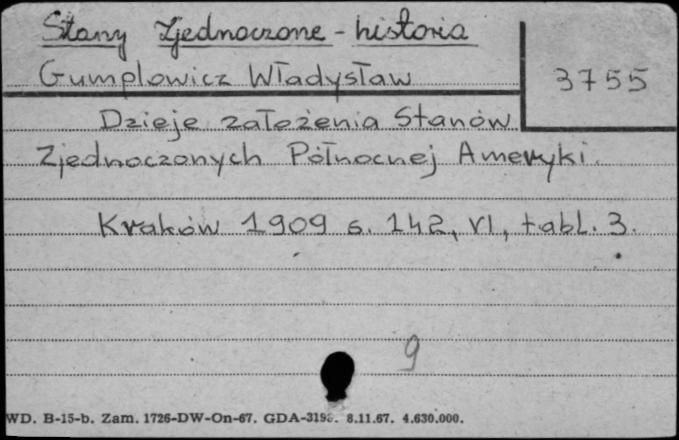 Stany Zjednoczone - historia
Gumplowicz Władysław
3755
Dzieje założenia Stanów
Zjednoczonych Północnej Ameryki.
Kraków 1909 s. 142, VI, tabl. 3.
9
WD. B-15-b. Zam. 1726-DW-On-67. GDA-319 8.11.67. 4.630.000.